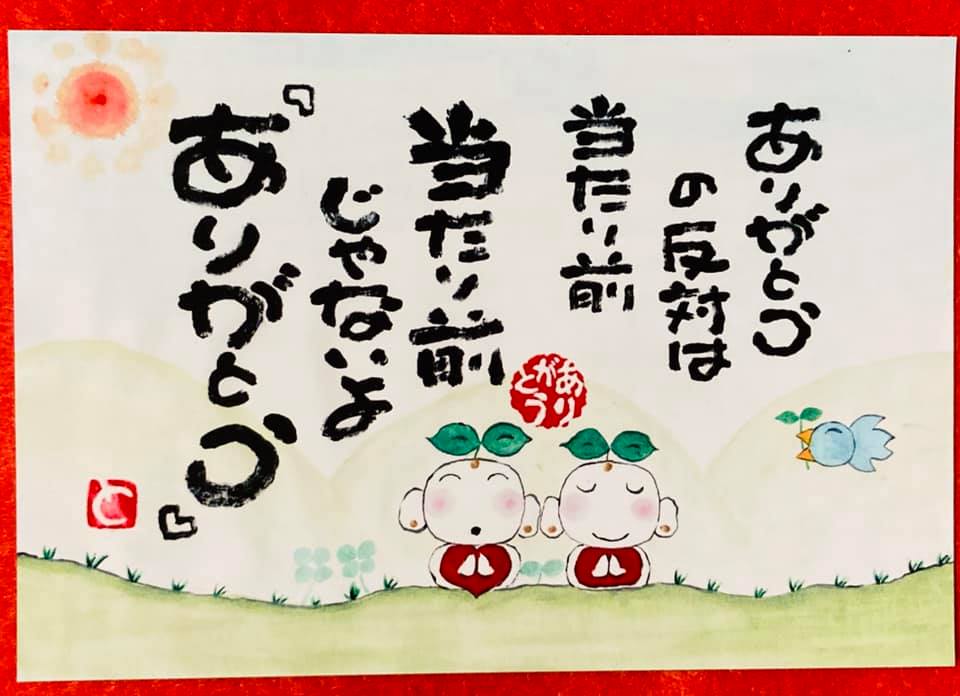 ありがとう
の反対は
当たり前
当たり前
じゃないよ
『ありがとう』
ありがとう
と